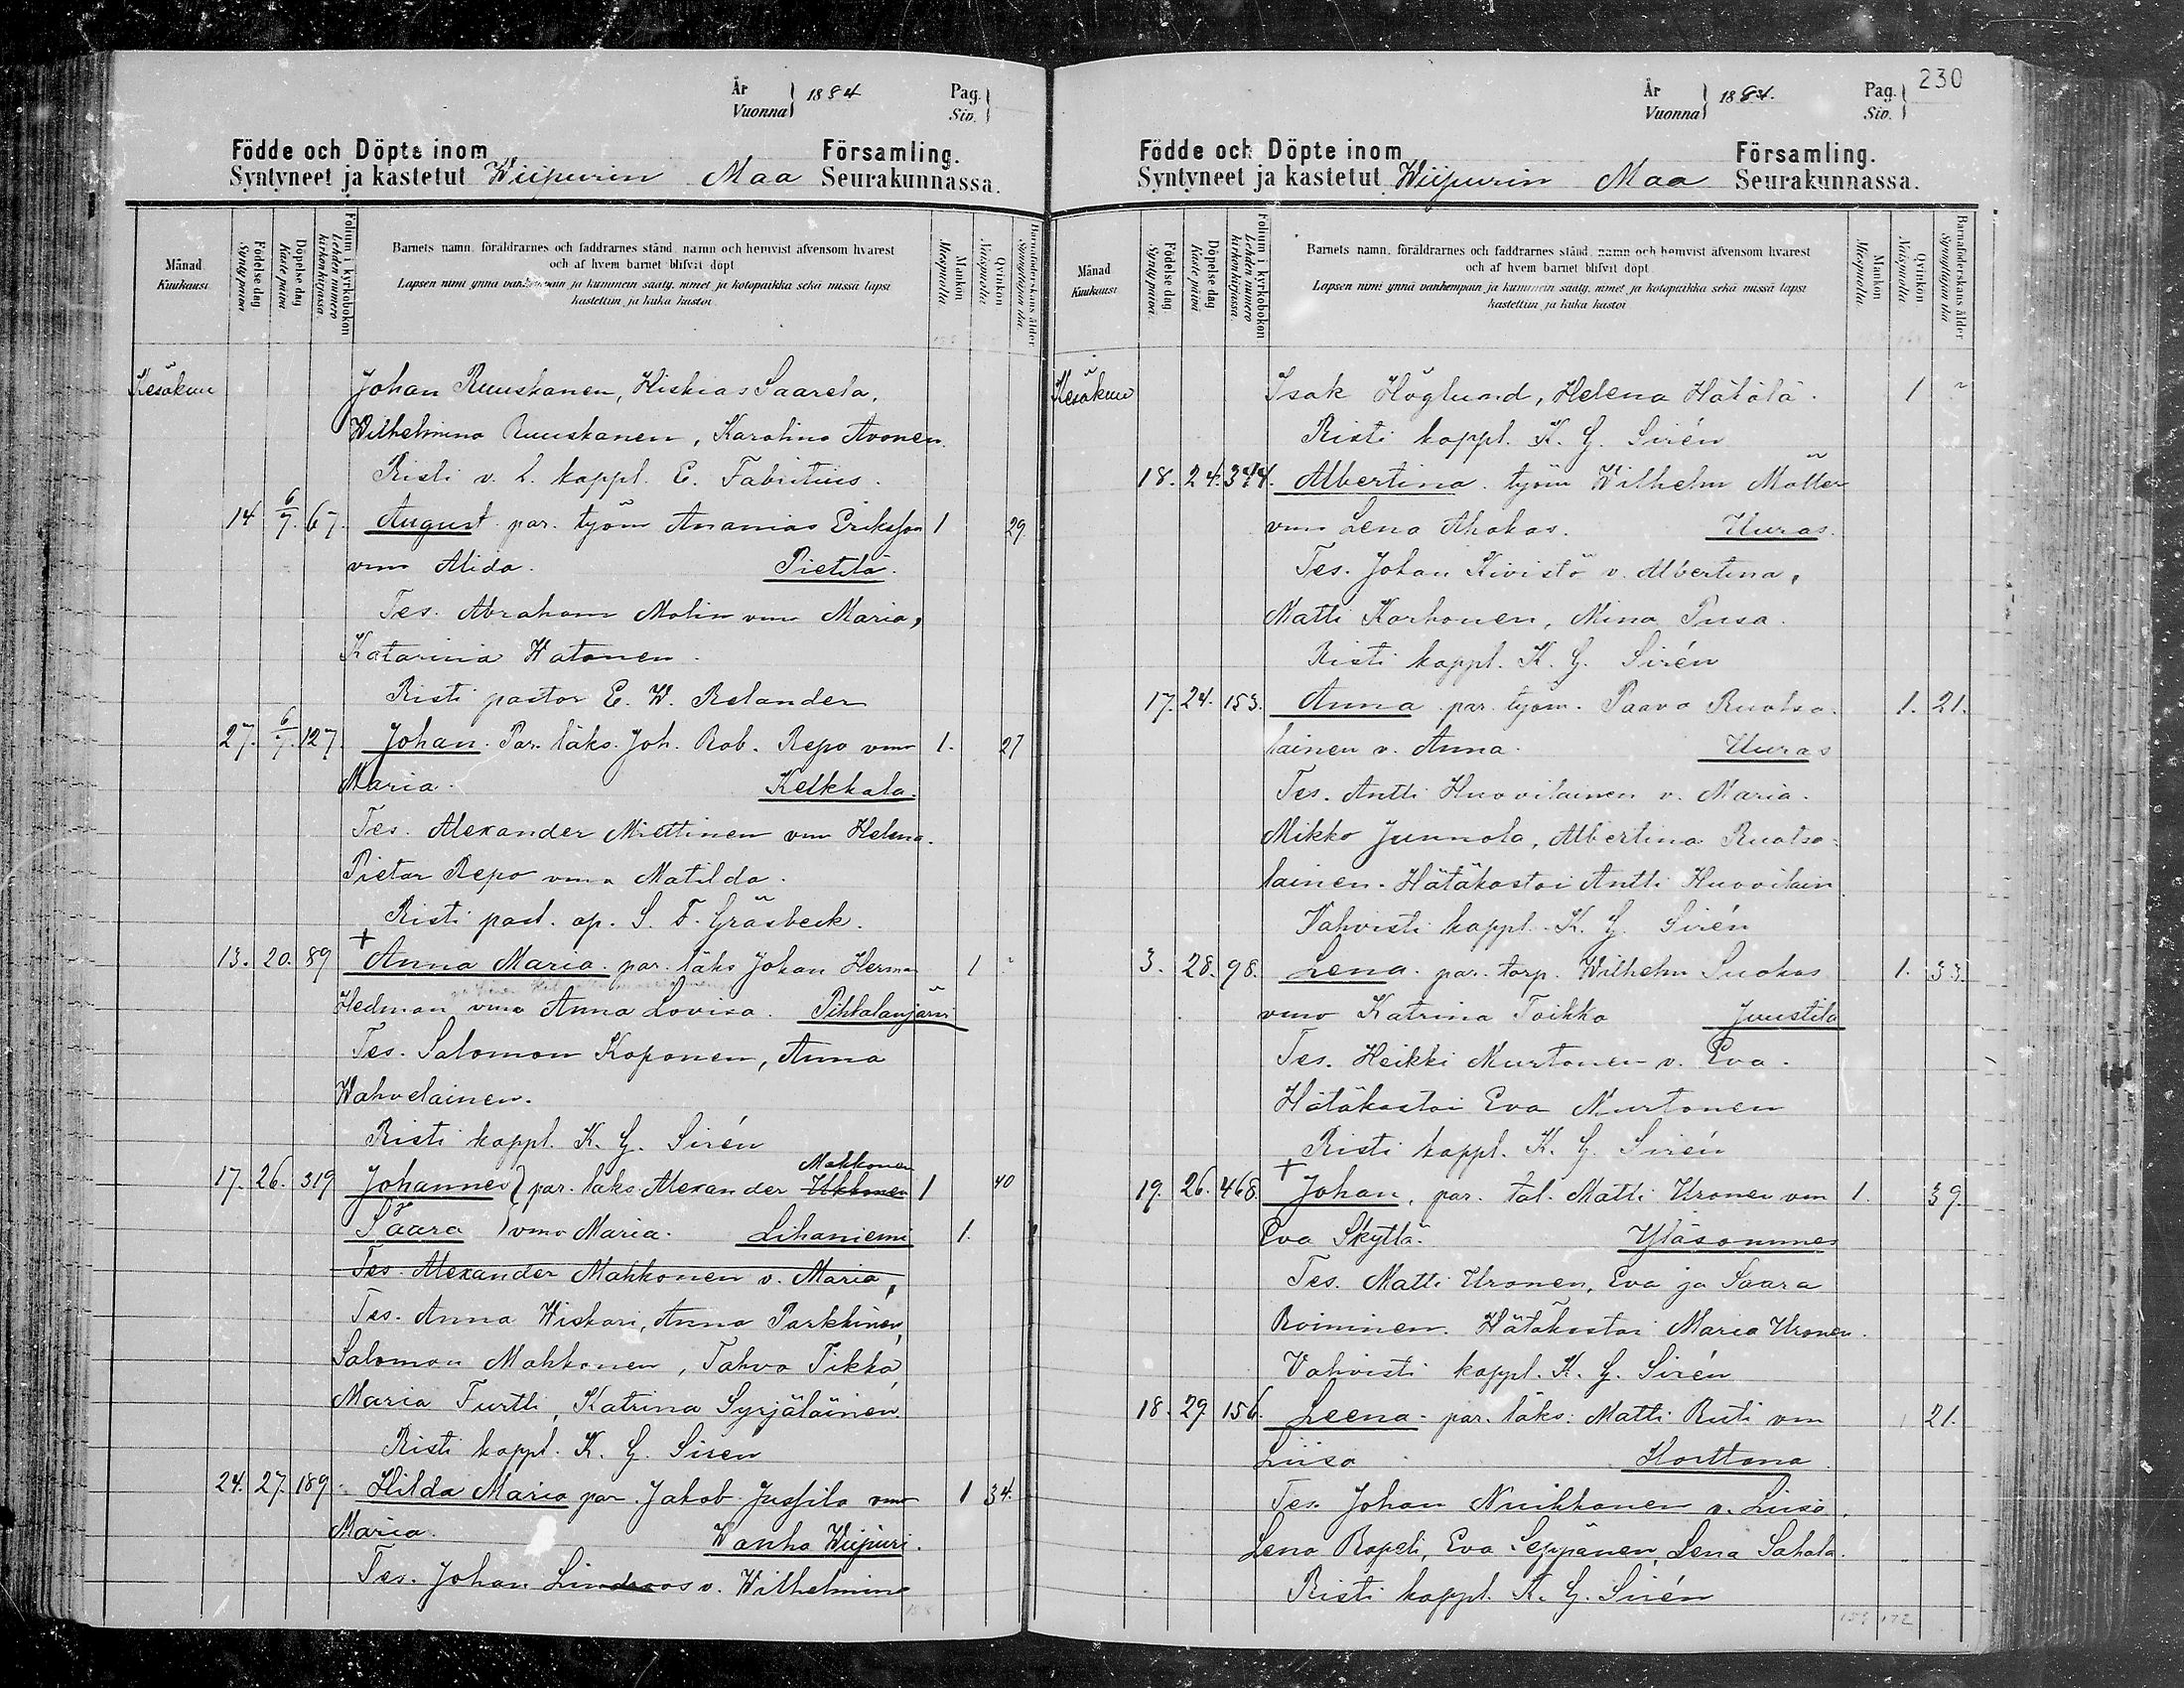 År
Vuonna } 1884
Pag.
Siv. }
Födde och Döpte inom Församling.
Syntyneet ja kastetut Wiipurin Maa Seurakunnassa.
Månad
Kuukausi
Födelse dag
Synty päivä
Döpelse dag
Kaste päivä
Folium i kyrkoboken
Lehden numero kirkonkirjassa.
Barnets namn, föräldrarnes och faddrarnes stånd, namn och hemvist äfvensom hvarest
och af hvem barnet blifvit döpt
Lapsen nimi ynnä vanhempain ja kummein sääty, nimet ja kotopaikka sekä missä lapsi
kastettiin ja kuka kastoi
Mankön
Miespuolia
Qvinkön
Naispuolia
Barnaföderskans ålder
Synnyttäjän ikä
Kesäkuu Johan Ruuskanen, Hiskias Saarela,
Wilhelmina Ruuskanen, Karolina Avonen.
Risti v. l. kappl. E. Fabritius.
14 6/7. 67. August par. työm Ananias Eriksson 1 29.
vmo Alida. Pietilä.
Tes. Abraham Molin vmo Maria,
Katarina Watanen.
Risti pastor E. W. Relander
27. 6/7. 127. Johan. Par. läks. Joh. Rob. Repo vmo 1. 27
Maria. Kelkkala.
Tes. Alexander Miettinen vm Helena.
Pietar Repo vmo Matilda.
Risti past. ap. S. F. Gräsbeck.
13. 20. 89 + Anna Maria. par. läks Johan Herman 1
Hedman vmo Anna Lovisa. Pihkalanjärvi
Tes. Salomon Koponen, Anna
Wahvelainen.
Risti kappl. K. G. Sirén
Makkonen
17. 26. 319 Johannes } par. läks Alexander Ukkonen 1 40
ja
Saara } vmo Maria. Lihaniemi 1.
Tes. Alexander Makkonen v. Maria,
Tes. Anna Wiskari, Anna Parkkinen,
Salomon Makkonen, Tahvo Tikka,
Maria Furtti, Katrina Syrjäläinen.
Risti kappl. K. G. Siren
24. 27. 189. Hilda Maria par. Jakob Jussila vmo 1 34.
Maria. Wanha Wiipuri.
Tes. Johan Lindroos v. Wilhelmina
230
År
Vuonna } 1884.
Pag.
Siv. }
Födde och Döpte inom Församling.
Syntyneet ja kastetut Wiipurin Maa Seurakunnassa.
Månad
Kuukausi
Födelse dag
Synty päivä.
Döpelse dag
Kaste päivä
Folium i kyrkoboken
Lehden numero kirkonkirjassa.
Barnets namn, föräldrarnes och faddrarnes stånd, namn och hemvist äfvensom hvarest
och af hvem barnet blifvit döpt
Lapsen nimi ynnä vanhempain ja kummein sääty, nimet ja kotopaikka sekä missä lapsi
kastettiin ja kuka kastoi
Mankön
Miespuolia
Qvinkön
Naispuolia
Barnaföderskans ålder
Synnyttäjän ikä
Kesäkuu Isak Höglund, Helena Hätälä. 1 "
Risti kappl. K. G. Sirén
18. 24. 344. Albertina. työm Wilhelm Mäller
vmo Lena Ahokas. Uuras.
Tes. Johan Kivistö v. Albertina,
Matti Korhonen, Mina Pusa.
Risti kappl. K. G. Sirén
17. 24. 153. Anna par. työm. Paavo Ruotsa- 1. 21.
lainen v. Anna. Uuras
Tes. Antti Huovilainen v. Maria.
Mikko Junnola, Albertina Ruotsa-
lainen. Hätäkastoi Antti Huovilain
Vahvisti kappl. K. G. Sirén
3. 28. 98. Lena. par. torp. Wilhelm Suokas 1. 33.
vmo Katrina Toikka Juustila
Tes. Heikki Murtonen v. Eva.
Hätäkastoi Eva Murtonen
Risti kappl. K. G. Sirén
19. 26. 468. + Johan, par. tal. Matti Uronen vm 1. 39.
Eva Skyttä. Yläsommee
Tes. Matti Uronen, Eva ja Saara
Roininen. Hätäkastoi Maria Uronen.
Vahvisti kappl. K. G. Sirén
18. 29. 156. Leena. par. läks: Matti Ruti vm 21.
Liisa Horttana
Tes. Johan Nuikkanen v. Liisa.
Lena Rapeli, Eva Seppänen, Lena Sahala.
Risti kappl. K. G. Sirén
159 172